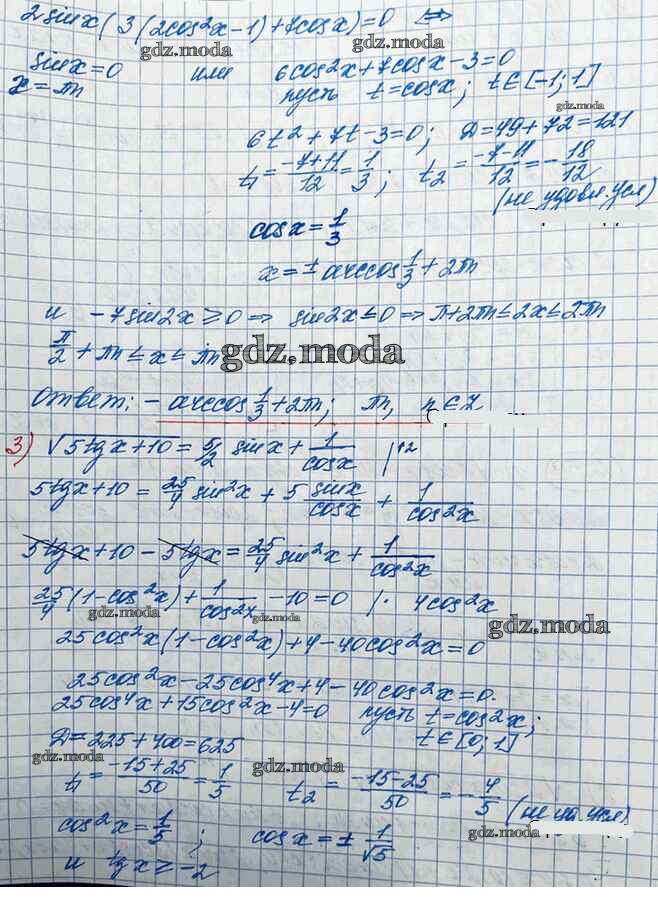 2sinx(3(2cos²x-1)+7cosx)=0 ⇔
gdz.moda
sinx=0 или 6cos²x+7cosx-3=0
x=πn пусть t=cosx; t∈[-1;1]
gdz.moda
gdz.moda
6t²+7t-3=0; D=49+72=121
t₁=(-7+11)/12=1/3; t₂=(-7-11)/12=-18/12
gdz.moda
(не удовл. усл)
cosx=1/3
x=±arccos 1/3+2πn
и -7sin2x≥0 ⇒ sin2x≤0 ⇒ π+2πn≤2x≤2πn
π/2+πn≤x≤πn
gdz.moda
Ответ: -arccos 1/3+2πn; πn, n∈Z
3) √5tgx+10=5/2 sinx+1/cosx |^2
5tgx+10=25/4 sin²x+5 sinx/cosx+1/cos²x
5tgx+10-5tgx=25/4 sin²x+1/cos²x
25/4(1-cos²x)+1/cos²x-10=0 |· 4cos²x
gdz.moda gdz.moda
gdz.moda
25cos²x(1-cos²x)+4-40cos²x=0
25cos²x-25cos⁴x+4-40cos²x=0.
25cos⁴x+15cos²x-4=0 пусть t=cos²x;
t∈[0;1]
D=225+400=625
gdz.moda gdz.moda
t₁=(-15+25)/50=1/5 t₂=(-15-25)/50=-4/5
cos²x=1/5; cosx=±1/√5
gdz.moda
и tgx≥-2